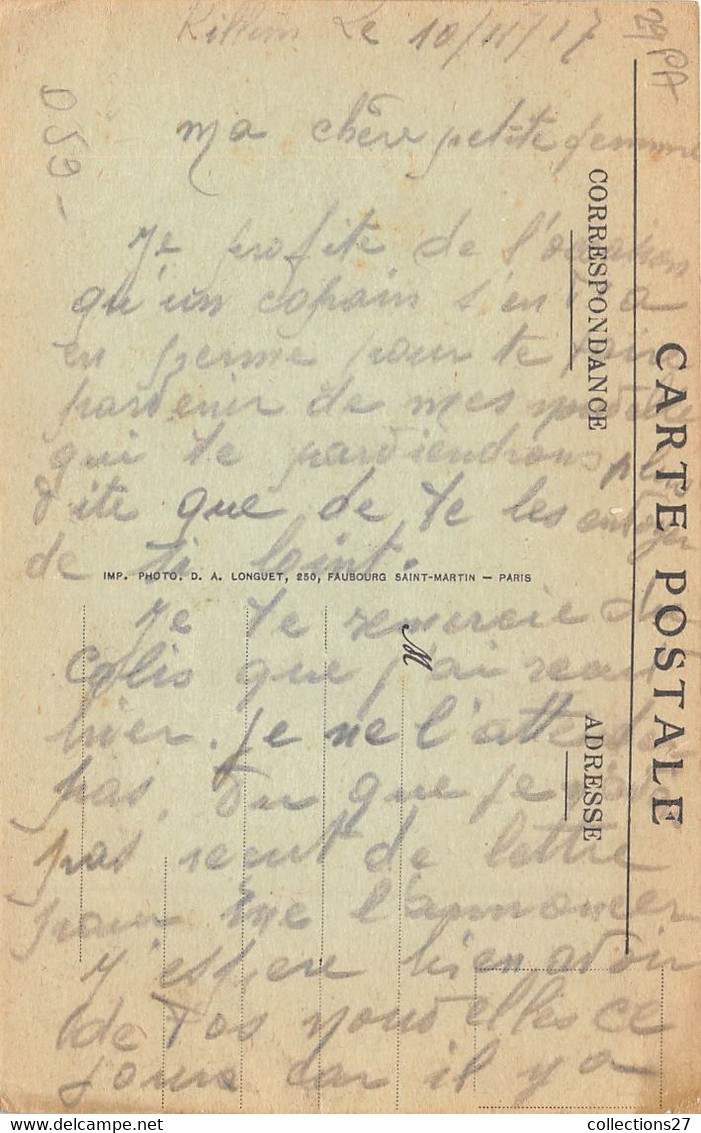 Killem Le 10/11/17
29 PA
D59-
ma chère petite femme
CARTE POSTALE
CORRESPONDANCE
ADRESSE
Je profite de l'occasion
qu'un copain s'en va
en perme pour te faire
parvenir de mes nouvelle
qui te parviendrons plus
vite que de te les envoyer
de si loint.
IMP. PHOTO. D. A. LONGUET, 250, FAUBOURG SAINT-MARTIN — PARIS
M
Je te remercie du
colis que j'ai recut
hier. Je ne l'attendais
pas, vu que je n'avais
pas recut de lettre
pour me l'annoncer
j'espere bien avoir
de vos nouvelles ce
jours car il y a
collections27